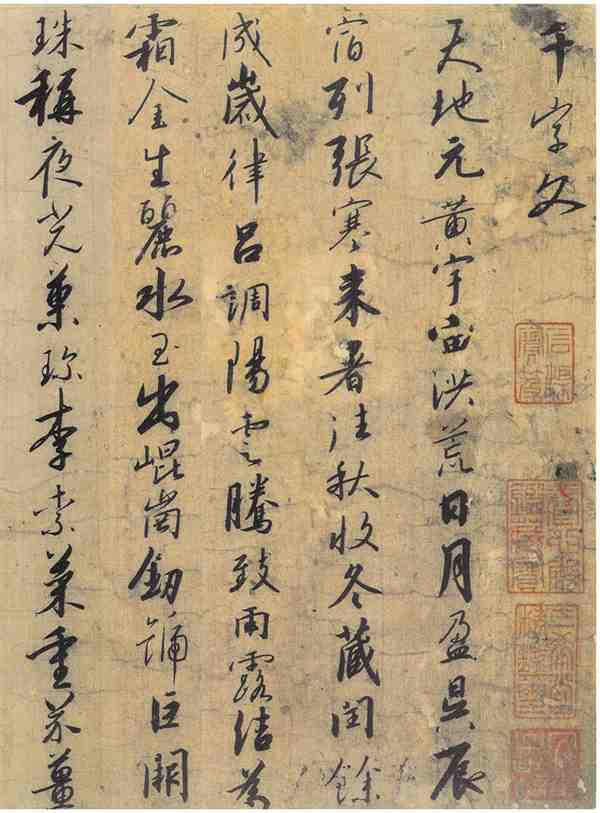 千字文
天地元黃宇宙洪荒日月盈昃辰
宿列張寒来暑往秋收冬藏閏餘
成歲律呂調陽雲騰致雨露結為
霜金生麗水玉出崐崗劒號巨闕
珠稱夜光菓珍李柰菜重芥薑